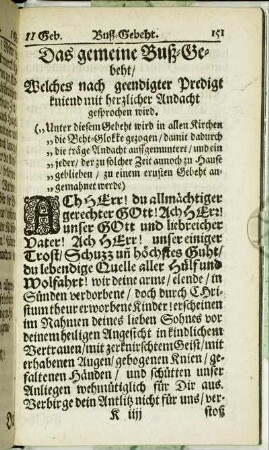 II Geb. Buß-Gebeht. 151
Das gemeine Buß-Ge-
beht/
Welches nach geendigter Predigt
kniend mit herzlicher Andacht
gesprochen wird.
(„Unter diesem Gebeht wird in allen Kirchen
„die Beht-Glokke gezogen/ damit dadurch
„die träge Andacht aufgemuntert/ und ein
„jeder/ der zu solcher Zeit annoch zu Hause
„geblieben/ zu einem ernsten Gebeht an-
„gemahnet werde)
ACh HErr! du allmächtiger
gerechter GOtt! Ach HErr!
unser GOtt und liebreicher
Vater! Ach HErr! unser einiger
Trost/ Schuzz uñ höchstes Guht/
du lebendige Quelle aller Hülf und
Wolfahrt! wir deine arme/ elende/ in
Sünden verdorbene/ doch durch Chri-
stum theur erworbene Kinder/ erscheinen
im Nahmen deines lieben Sohnes vor
deinem heiligen Angesicht in kindlichem
Vertrauen/ mit zerknirschtem Geist/ mit
erhabenen Augen/ gebogenen Knien/ ge-
faltenen Händen/ und schütten unser
Anliegen wehmütiglich für Dir aus.
Verbirge dein Antlitz nicht für uns/ ver-
K iiij stoß